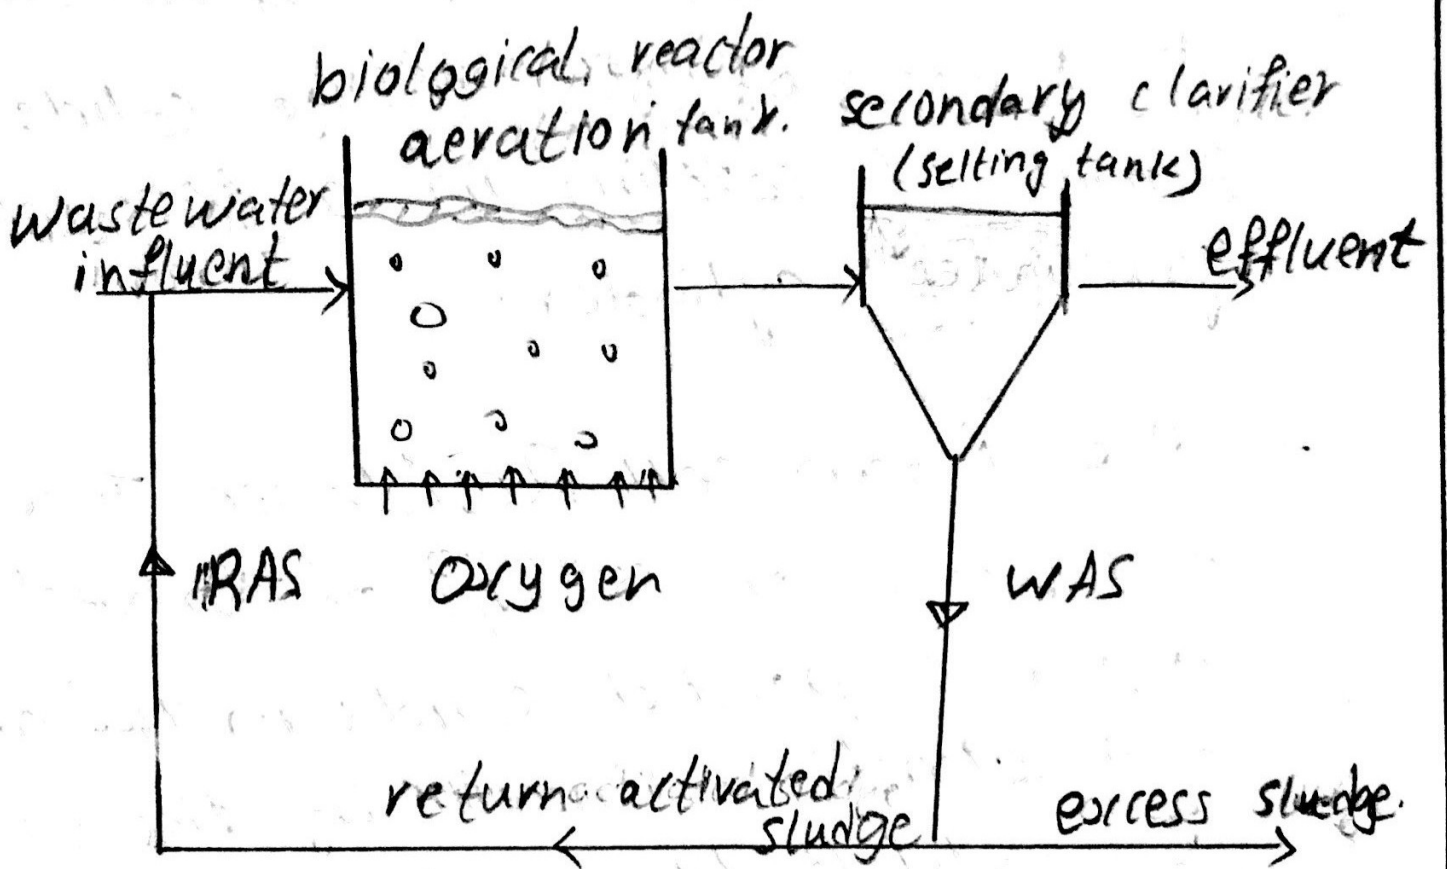 biological reactor
aeration tank.
secondary clarifier
(selting tank)
wastewater
influent
effluent
RAS
Oxygen
WAS
return activated
sludge
excess sludge.